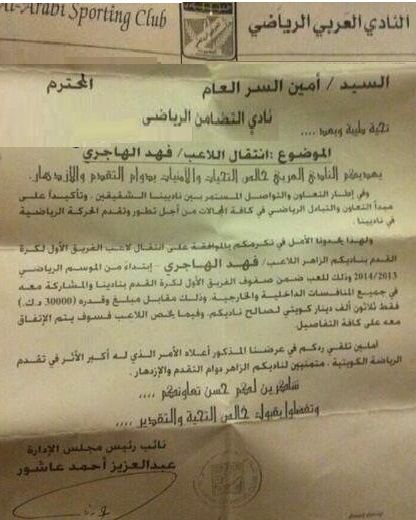 Al-Arabi Sporting Club
النادي العربي الرياضي
السيد / أمين السر العام
المحترم
نادي التضامن الرياضي
تحية طيبة وبعد ....
الموضوع : انتقال اللاعب/ فهد الهاجري
يهديكم النادي العربي خالص التحيات والأمنيات بدوام التقدم والأزدهار.
وفي إطار التعاون والتواصل المستمر بين ناديينا الشقيقين . وتأكيداً على
مبدأ التعاون والتبادل الرياضي في كافة المجالات من أجل تطور وتقدم الحركة الرياضية
في ناديينا .
ولهذا يحدونا الأمل في تكرمكم بالموافقة على انتقال لاعب الفريق الأول لكرة
القدم بناديكم الزاهر اللاعب/ فهد الهاجري - إبتداء من الموسم الرياضي
2014/2013 وذلك للعب ضمن صفوف الفريق الأول لكرة القدم بنادينا والمشاركة معه
في جميع المنافسات الداخلية والخارجية، وذلك مقابل مبلغ وقدره (30000 د.ك.)
فقط ثلاثون ألف دينار كويتي لصالح ناديكم، وفيما يخص اللاعب فسوف يتم الإتفاق
معه على كافة التفاصيل.
آملين تلقي ردكم في عرضنا المذكور أعلاه الأمر الذي له أكبر الأثر في تقدم
الرياضة الكويتية . متمنيين لناديكم الزاهر دوام التقدم والإزدهار.
شاكرين لكم حسن تعاونكم ....
وتفضلوا بقبول خالص التحية والتقدير ....
نائب رئيس مجلس الإدارة
عبدالعزيز أحمد عاشور